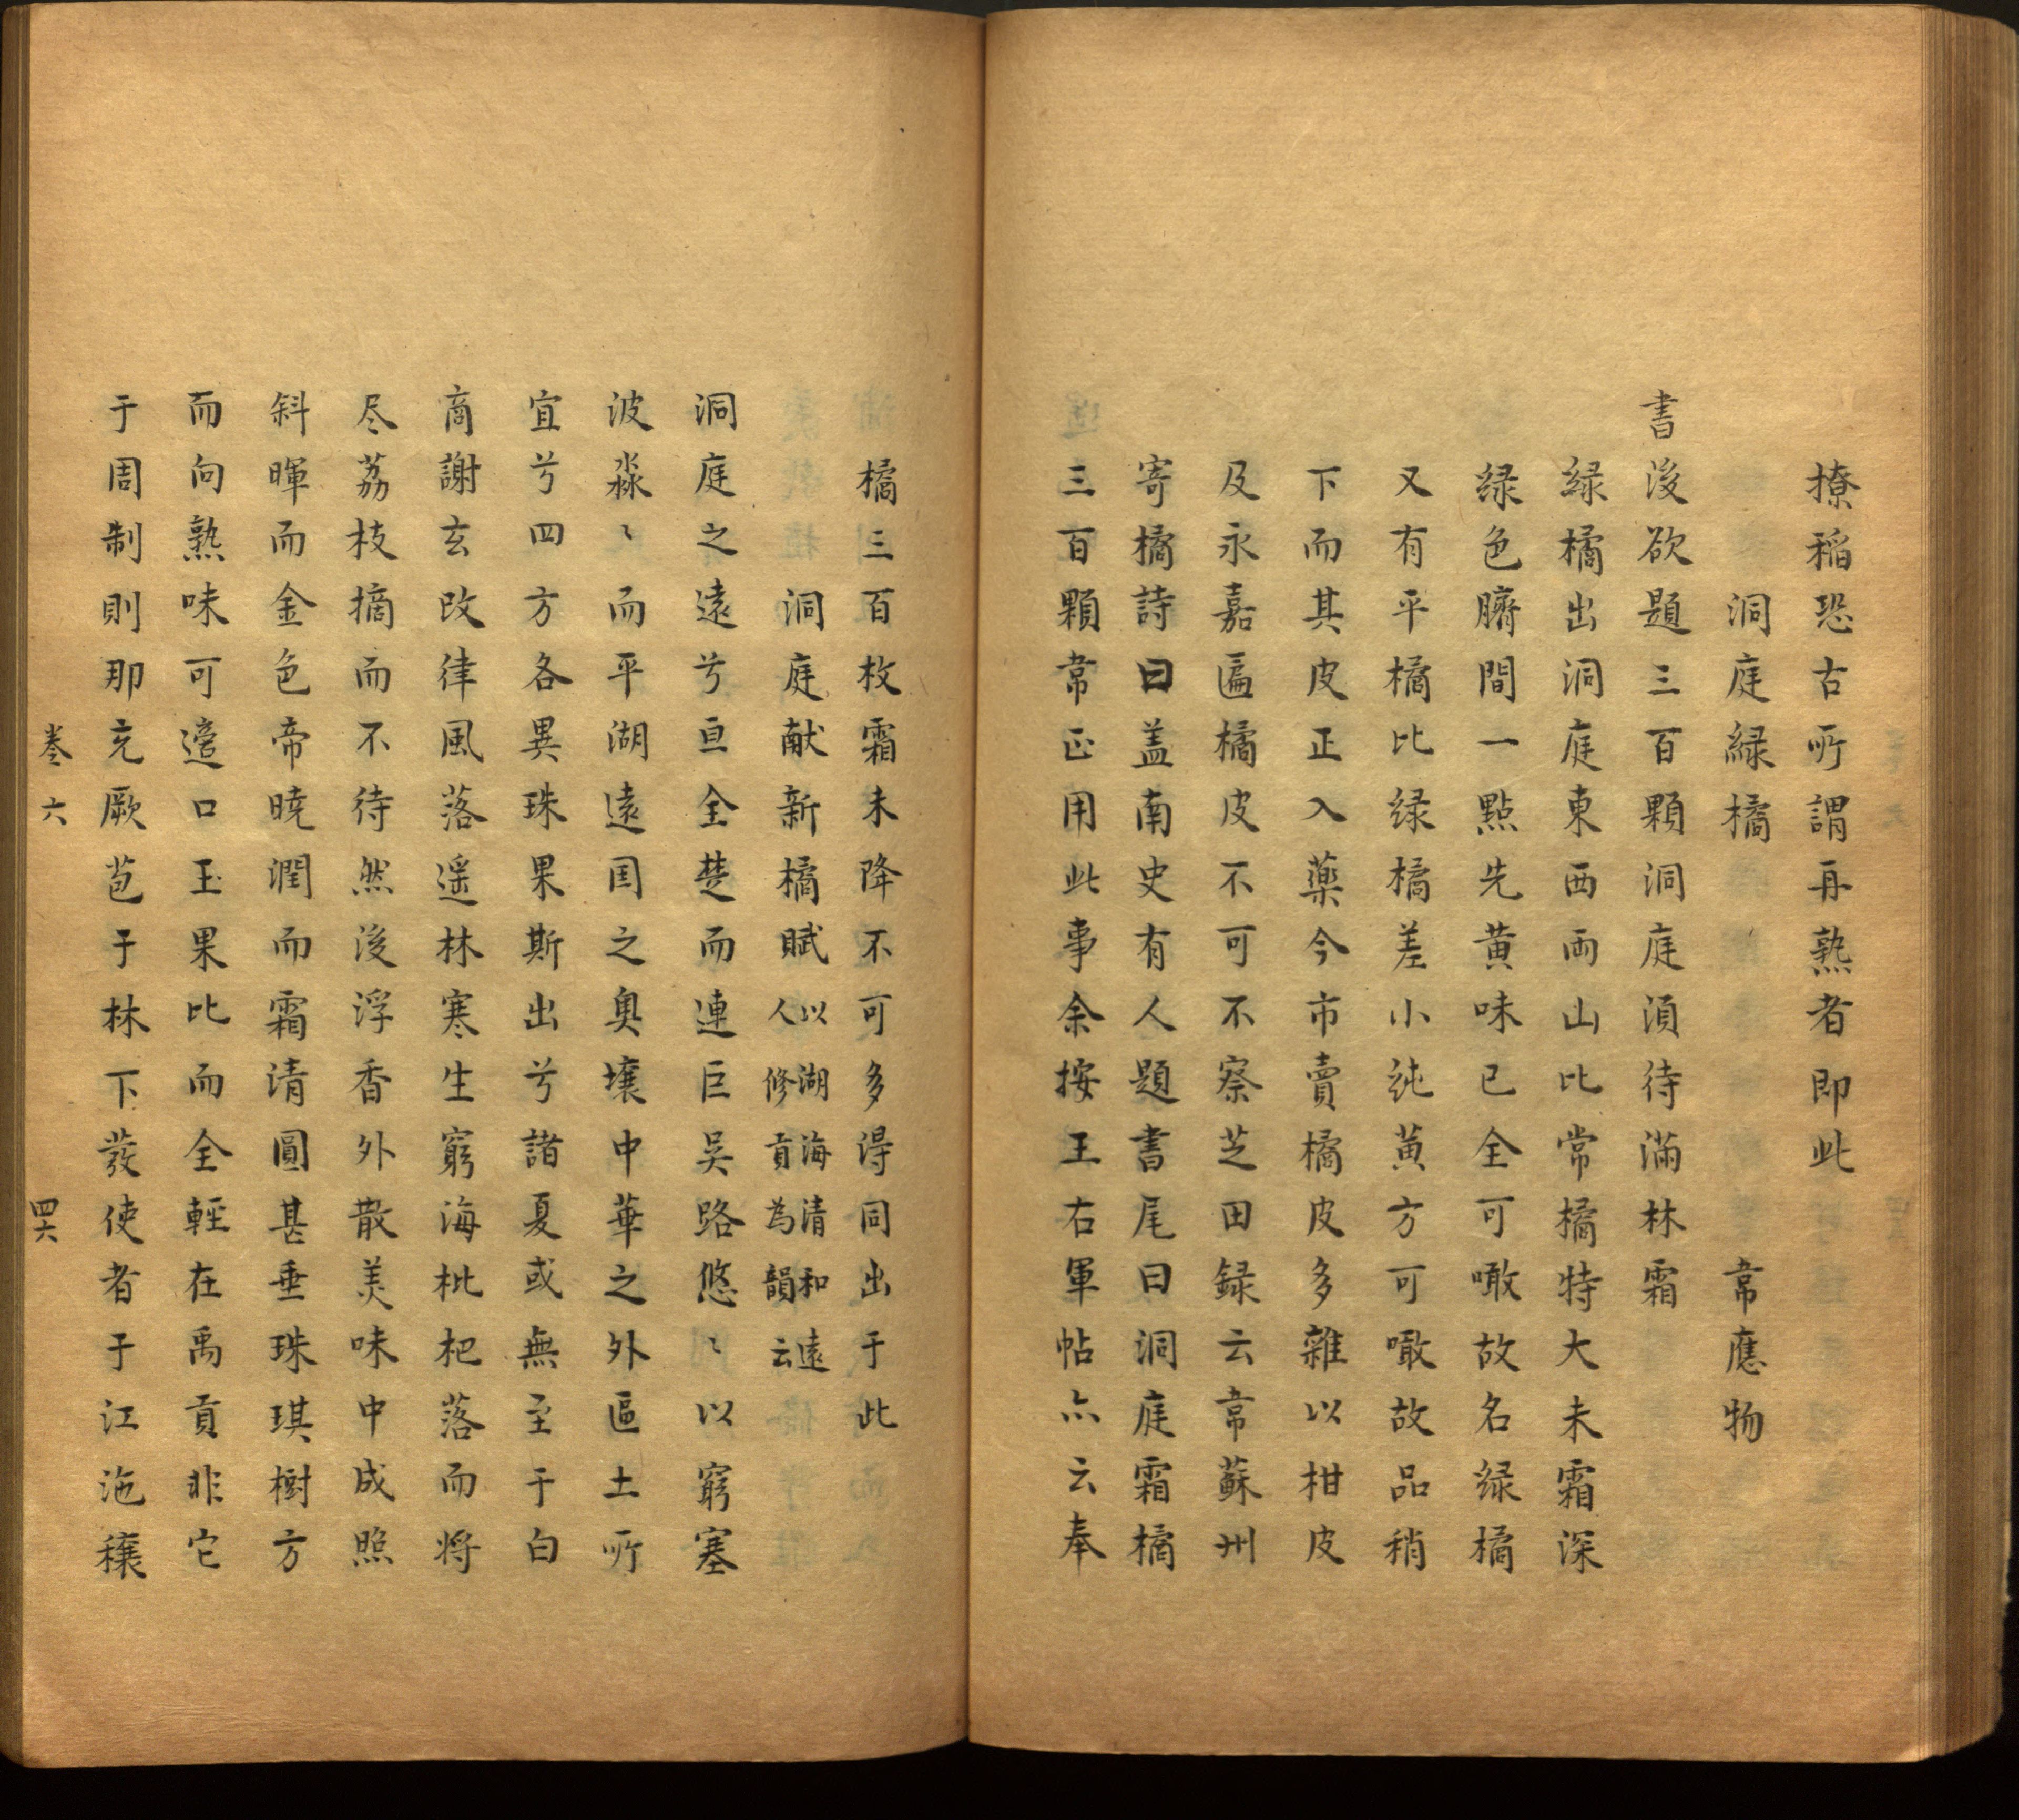 撩稲恐古所謂再熟者即此
洞庭緑橘　韋應物
書後欲題三百顆洞庭湏待滿林霜
緑橘出洞庭東西兩山比常橘特大未霜深
緑色臍間一點先黄味已全可噉故名緑橘
又有平橘比緑橘差小純黄方可噉故品稍
下而其皮正入藥今市賣橘皮多雜以柑皮
及永嘉匾橘皮不可不察芝田録云韋蘇州
寄橘詩曰盖南史有人題書尾曰洞庭霜橘
三百顆韋正用此事余按王右軍帖亦云奉
橘三百枚霜未降不可多得同出于此
洞庭献新橘賦以湖海清和遠人修貢為韻云
洞庭之遠兮亘全楚而連巨吳路悠〻以窮塞
波淼〻而平湖遠国之奥壤中華之外區土所
宜兮四方各異珠果斯出兮諸夏或無至于白
商謝玄改律風落遥林寒生窮海枇杷落而将
尽荔枝摘而不待然後浮香外散美味中成照
斜暉而金色帝曉潤而霜清圓甚垂珠琪樹方
而向熟味可適口玉果比而全輕在禹貢非它
于周制則那充厥苞于林下𤼲使者于江沲穰
卷六　四六